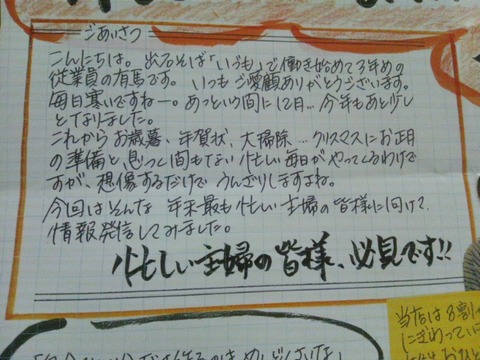 ごあいさつ
こんにちは。出石そば「いづも」で働き始めて3年めの
従業員の有馬です。いつもご愛顧ありがとうございます。
毎日寒いですねー。あっという間に12月…今年もあと少し
となりました。
これからお歳暮、年賀状、大掃除…クリスマスにお正月
の準備と、息つく間もない忙しい毎日がやってくるわけで
すが、想像するだけでうんざりしますよね。
今回はそんな年末最も忙しい主婦の皆様に向けて、
情報発信してみました。
忙しい主婦の皆様、必見です!!
当店は8割
にぎわってい